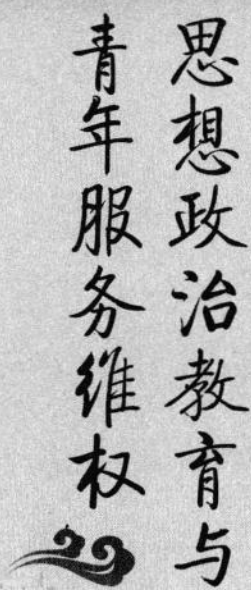 思想政治教育与
青年服务维权